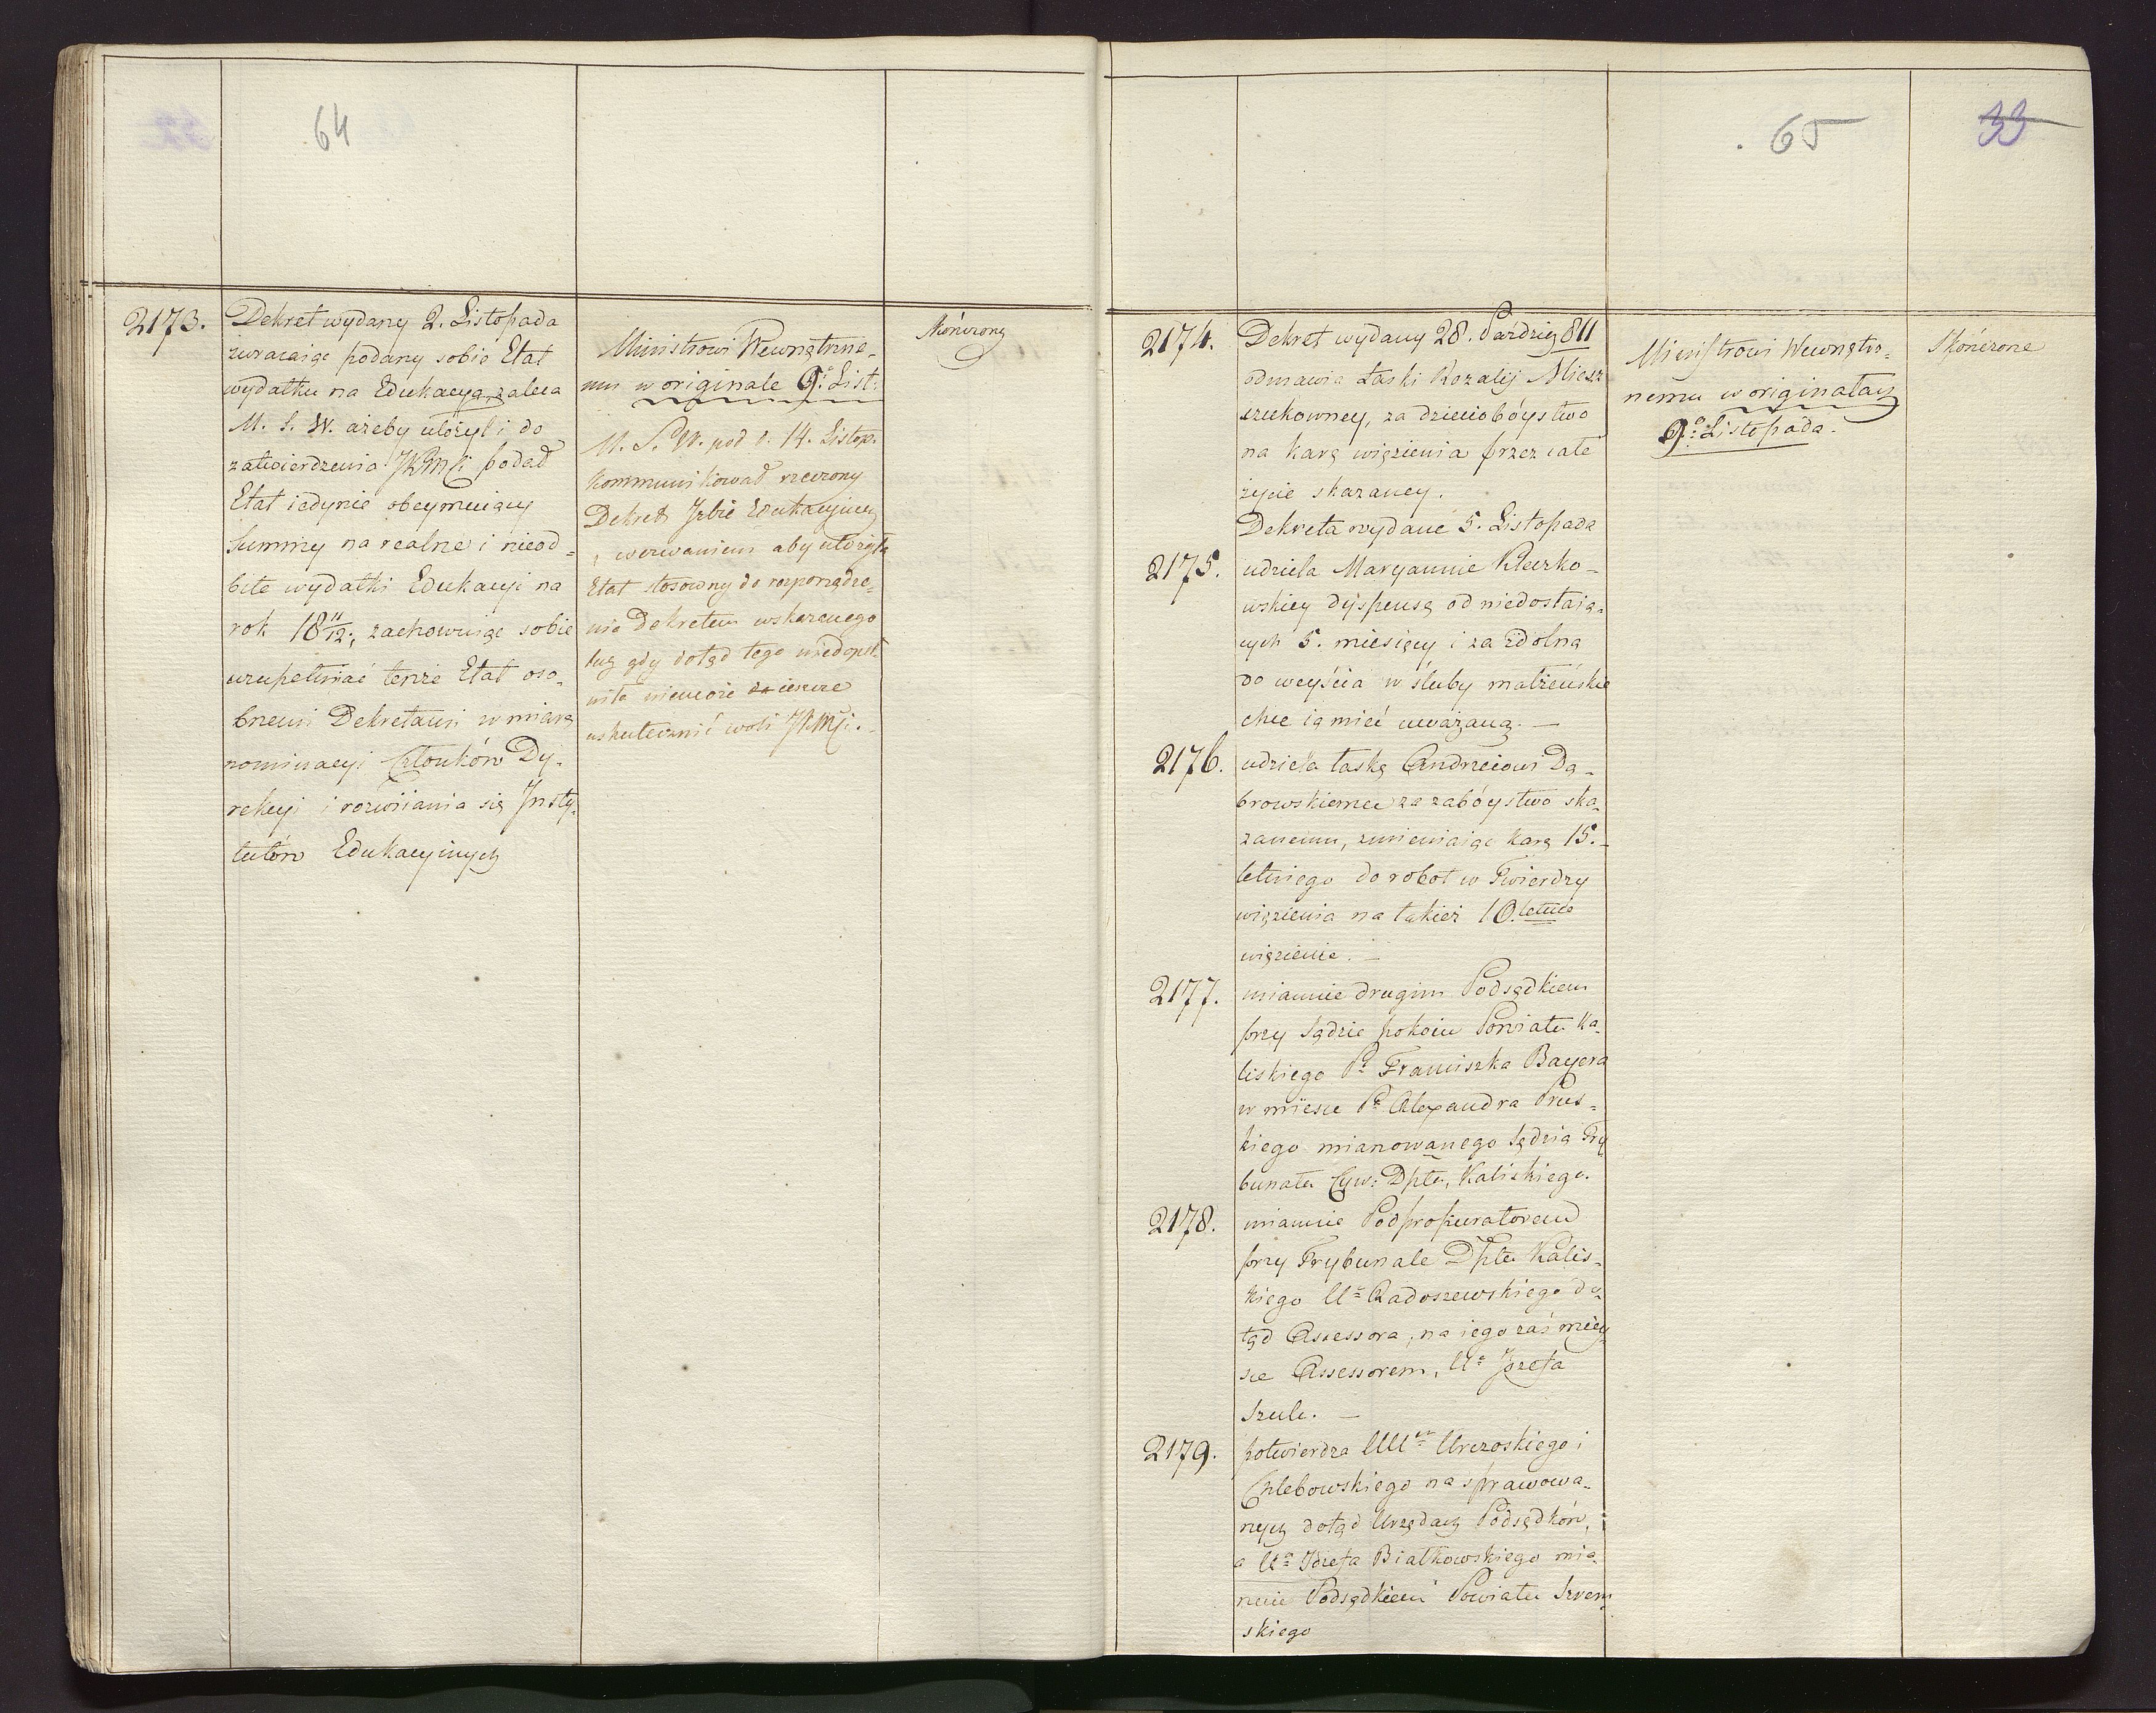 64
2173.
Dekret wydany 2. Listopada
zwracaiąc podany sobie Etat
wydatku na Edukacyą, zaleca
M. S. W. ażeby ułożył i do
zatwierdzenia JKMci podał
Etat iedynie obeymuiący
Summy na realne i nieod-
bite wydatki Edukacyi na
rok 18 11/12, zachowuiąc sobie
uzupełniać tenże Etat oso-
bnemi Dekretami w miarę
nominacyi Członków Dy-
rekcyi i rozwiiania się Insty-
tutów Edukacyinych
Ministrowi Wewnętrzne-
mu w originale 9º List:
M. S. W. pod d. 14. Listop.
kommunikował rzeczony
Dekret Izbie Edukacyiney
z wezwaniem aby ułożyła
Etat stosowny do rozporządze-
nia Dekretem wskazanego
lecz gdy dotąd tego niedopeł-
niła niemoże ieszcze
uskutecznić woli JKMci.
Skończony
65
33
2174.
Dekret wydany 28. Paździe 811
odmawia Łaski Rozalij Miesz
czukowney, za dzieciobóystwo
na karę więzienia przez całe
życie skazaney.
Dekreta wydane 5. Listopada
2175.
udziela Maryannie Kleczko-
wskiey dyspensę od niedostaią-
cych 5. miesięcy i za zdolną
do weyścia w śluby małżeńskie
chce ią mieć uważaną. —
2176.
udziela łaskę Andrzeiowi Dą-
browskiemu za zabóystwo ska-
zanemu, zmieniaiąc karę 15.-
letniego do robot w Twierdzy
więzienia na takież 10. letnie
więzienie. —
2177.
mianuie drugim Podsędkiem
przy Sądzie pokoiu Powiatu Ka-
liskiego Pª Franciszka Bayera
w miescu Pª Alexandra Prus-
kiego mianowanego Sędzią Try
bunału Cyw: Dptu, Kaliskiego.
2178.
mianuie Podprokuratorem
przy Trybunale Dptu Kalis-
kiego Uº Radoszewskiego do-
tąd Assessora, na iego zaś miey-
sce Assessorem, Uº Jozefa
Szulc. —
2179.
potwierdza UUº Urczoskiego i
Chlebowskiego na sprawowa-
nych dotąd Urzędach Podsędków,
a Uº Józefa Białkowskiego mia-
nuie Podsędkiem Powiatu Szrem
skiego
Ministrowi Wewnętrz-
nemu w originałach
9º Listopada.
Skończone